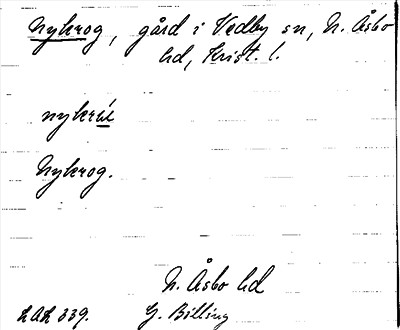 Nykrog, gård i Vedby sn, N. Åsbo
hd, Krist. l.
Nykrog.
N. Åsbo hd
LAL 339. G. Billing